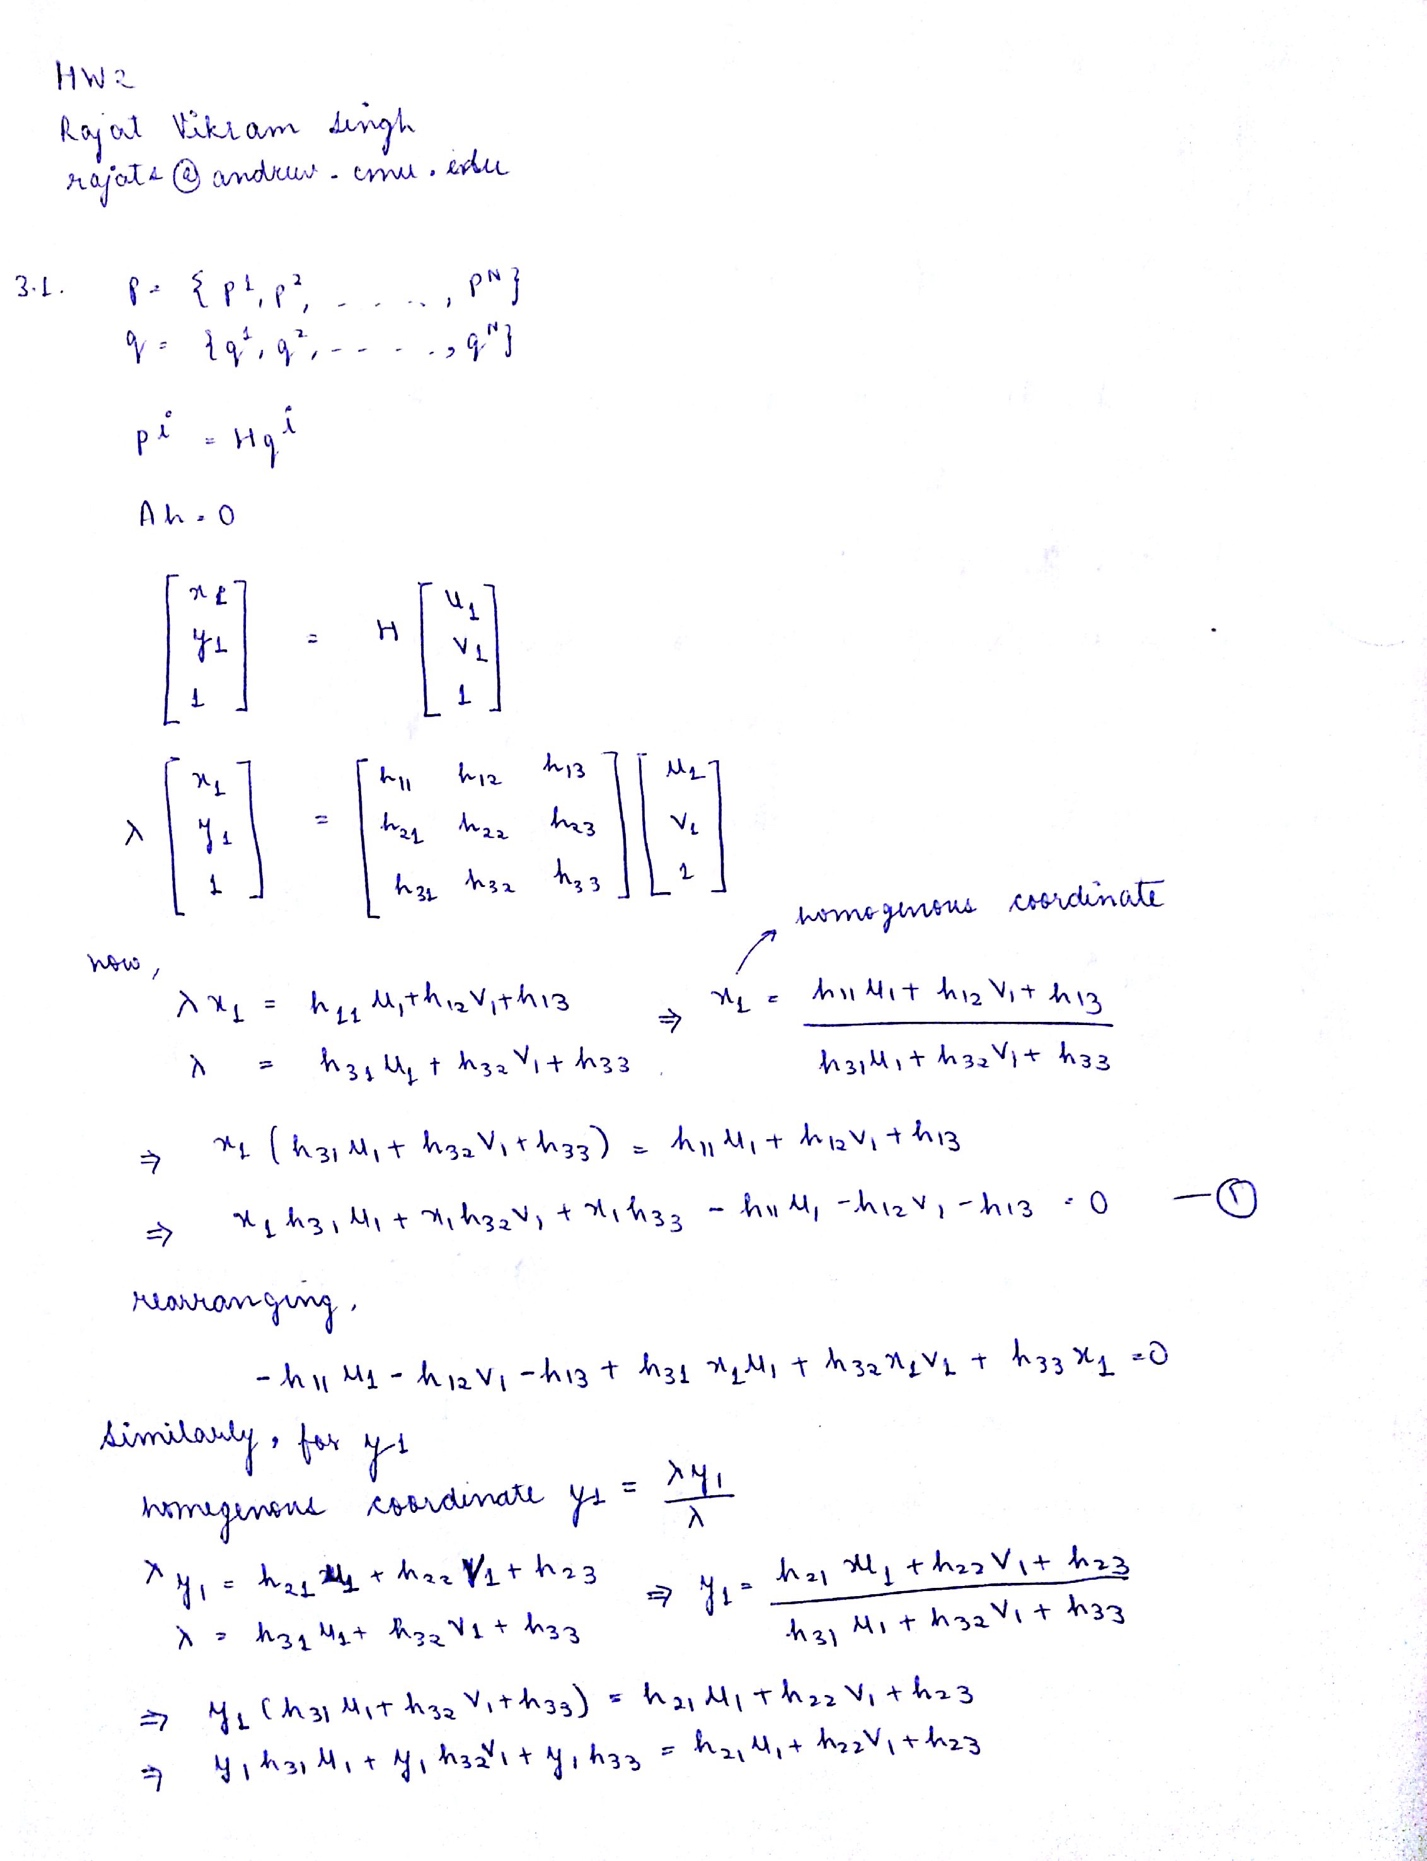 HW2
Rajat Vikram Singh
rajats@andrew.cmu.edu
3.1. p = { p¹, p², - - - .., pᴺ }
q = { q¹, q², - - - - .., qᴺ }
pⁱ = Hqⁱ
Ah = 0
[x₁ y₁ 1] = H [u₁ v₁ 1]
λ [x₁ y₁ 1] = [h₁₁ h₁₂ h₁₃ h₂₁ h₂₂ h₂₃ h₃₁ h₃₂ h₃₃] [u₁ v₁ 1]
homogenous coordinate
now,
λx₁ = h₁₁u₁ + h₁₂v₁ + h₁₃ ⇒ x₁ = (h₁₁u₁ + h₁₂v₁ + h₁₃) / (h₃₁u₁ + h₃₂v₁ + h₃₃)
λ = h₃₁u₁ + h₃₂v₁ + h₃₃
⇒ x₁ (h₃₁u₁ + h₃₂v₁ + h₃₃) = h₁₁u₁ + h₁₂v₁ + h₁₃
⇒ x₁h₃₁u₁ + x₁h₃₂v₁ + x₁h₃₃ - h₁₁u₁ - h₁₂v₁ - h₁₃ = 0 —①
rearranging,
-h₁₁u₁ - h₁₂v₁ - h₁₃ + h₃₁x₁u₁ + h₃₂x₁v₁ + h₃₃x₁ = 0
Similarly, for y₁
homegenous coordinate y₁ = λy₁ / λ
λy₁ = h₂₁u₁ + h₂₂v₁ + h₂₃ ⇒ y₁ = (h₂₁u₁ + h₂₂v₁ + h₂₃) / (h₃₁u₁ + h₃₂v₁ + h₃₃)
λ = h₃₁u₁ + h₃₂v₁ + h₃₃
⇒ y₁ (h₃₁u₁ + h₃₂v₁ + h₃₃) = h₂₁u₁ + h₂₂v₁ + h₂₃
⇒ y₁h₃₁u₁ + y₁h₃₂v₁ + y₁h₃₃ = h₂₁u₁ + h₂₂v₁ + h₂₃